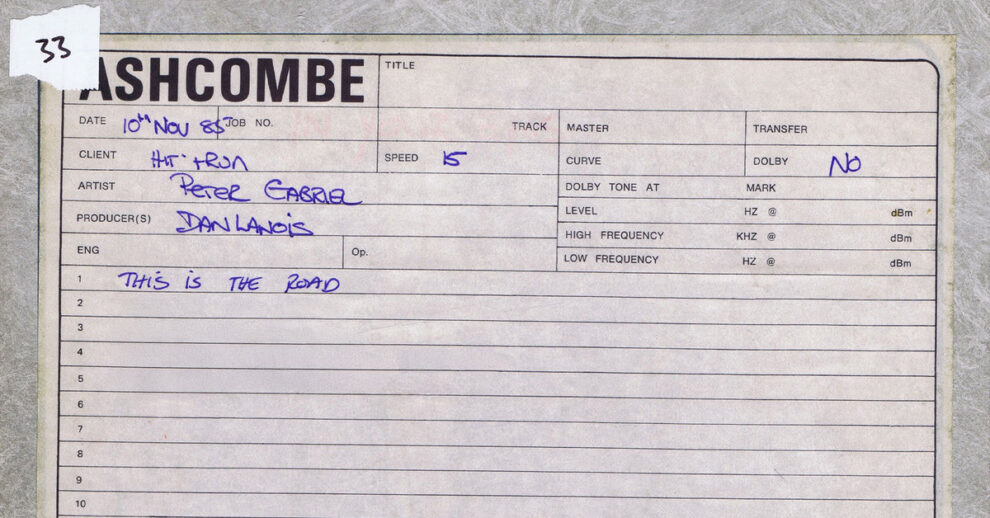 33
ASHCOMBE
TITLE
DATE 10th NOV 85 JOB NO. TRACK MASTER TRANSFER
CLIENT HIT + RUN SPEED 15 CURVE DOLBY NO
ARTIST PETER GABRIEL DOLBY TONE AT MARK
PRODUCER(S) DAN LANOIS LEVEL HZ @ dBm
HIGH FREQUENCY KHZ @ dBm
ENG Op. LOW FREQUENCY HZ @ dBm
1 THIS IS THE ROAD
2
3
4
5
6
7
8
9
10